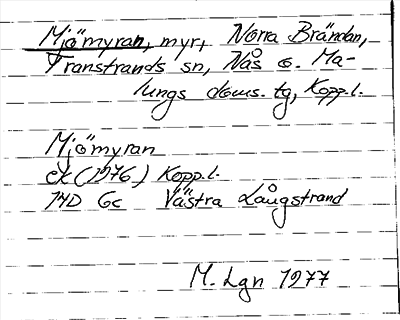 Mjömyran, myr, Norra Brändan,
Transtrands sn, Nås o. Ma-
lungs doms. tg, Kopp.l.
Mjömyran
ek (1976) Kopp.l.
14D 6c Västra Långstrand
M. Lgn 1977